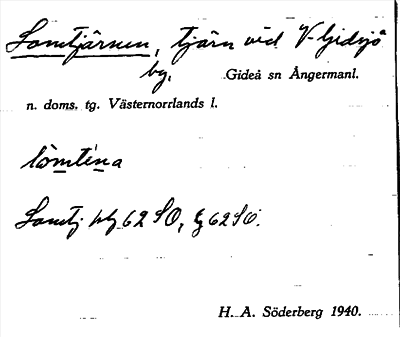 Lomtjärnen, tjärn vid V. Gidsjö
by, Gideå sn Ångermanl.
n. doms. tg. Västernorrlands l.
lòmtéṇa
Lomtj. 62 SO, 62 SO.
H. A. Söderberg 1940.